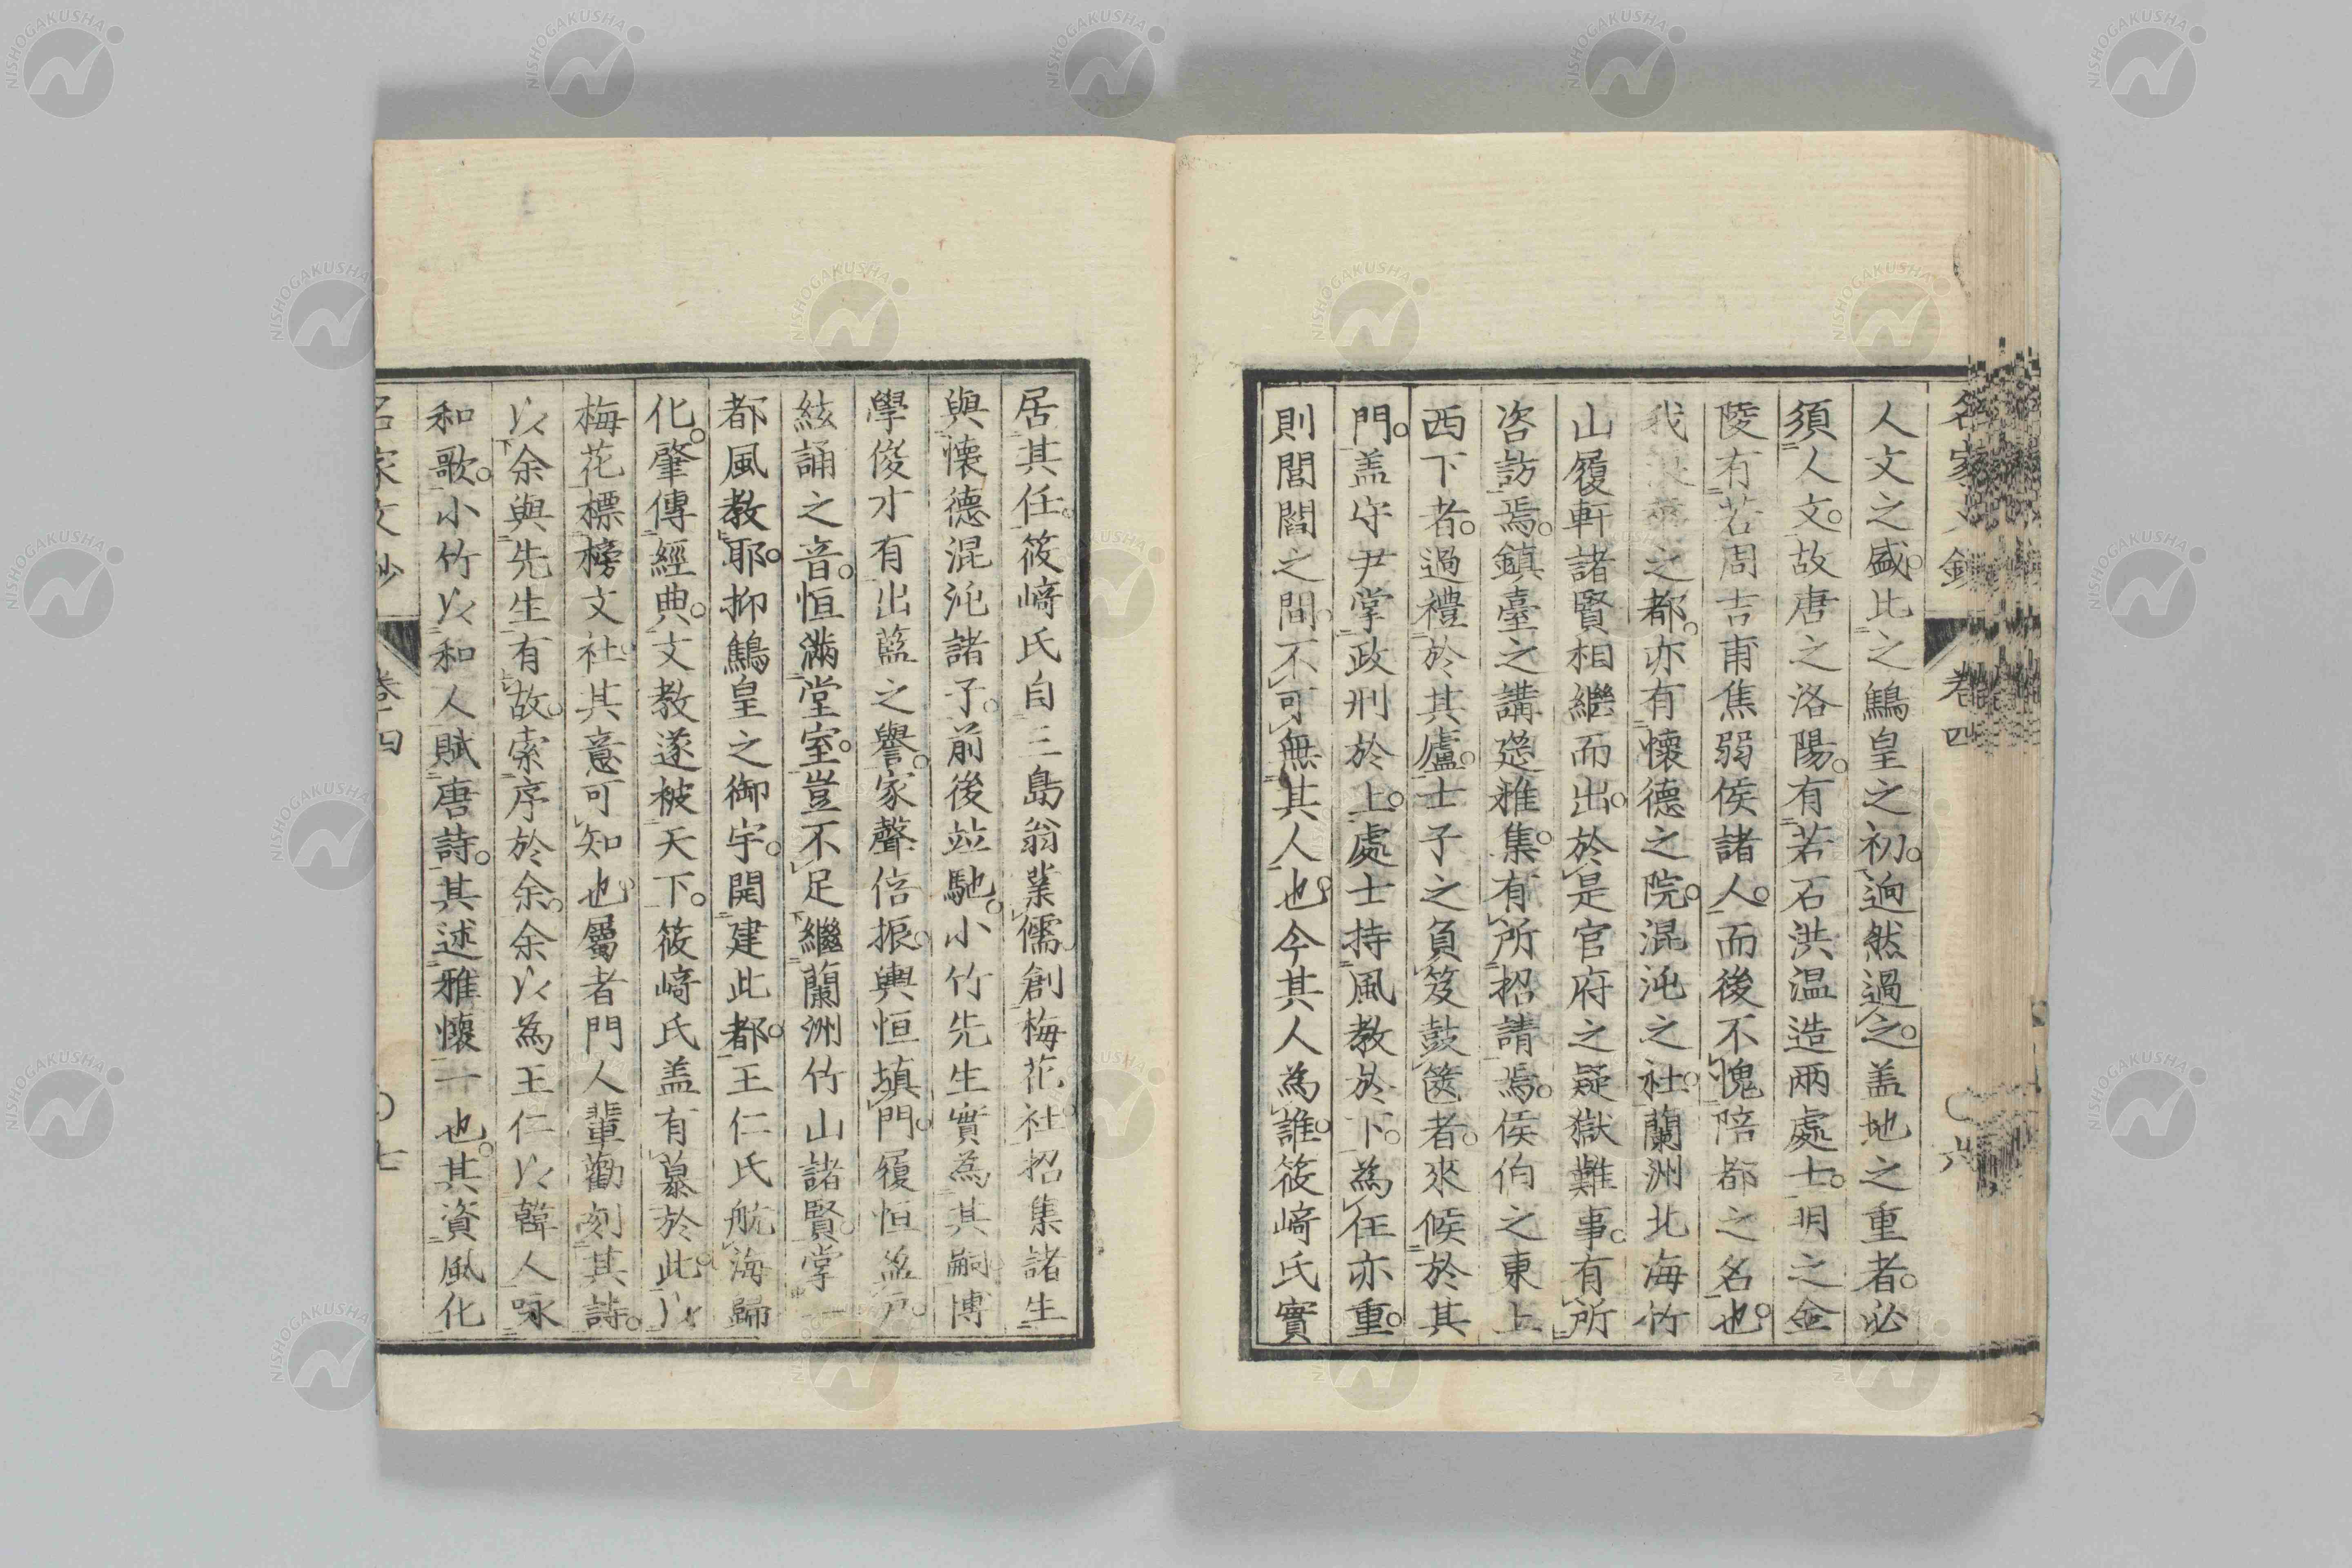 人文之盛。此之鷦皇之初。逈然過之。盖地之重者。必
須人文。故唐之洛陽。有若石洪温造兩處士。明之金
陵有若周吉甫焦弱侯諸人。而後不愧陪都之名也。
我浪華之都。亦有懷德之院。混沌之社。蘭洲北海竹
山履軒諸賢相繼而出。於是官府之疑獄難事。有所
咨訪焉。鎮臺之講筵雅集。有所招請焉。侯伯之東上
西下者。過禮於其廬。士子之負笈鼓篋者。來候於其
門。盖守尹掌政刑於上。處士持風教於下。為任亦重。
則閭閻之間。不可無其人也。今其人為誰。筱﨑氏實
居其任。筱﨑氏自三島翁業儒。創梅花社。招集諸生
與懷德混沌諸子。前後竝馳。小竹先生實為其嗣。博
學俊才有出藍之譽。家聲倍振。輿恒填門。履恒盈戶。
絃誦之音。恒滿堂室。豈不足繼蘭洲竹山諸賢。掌一
都風教耶。抑鷦皇之御宇。開建此都。王仁氏航海歸
化。肇傳經典。文教遂被天下。筱﨑氏盖有慕於此。以
梅花標榜文社。其意可知也。屬者門人輩勸刻其詩。
以余與先生有故。索序於余。余以為王仁以韓人咏
和歌。小竹以和人賦唐詩。其述雅懷一也。其資風化
名家文鈔
卷四
六
名家文鈔
卷四
七
NISHOGAKUSHA